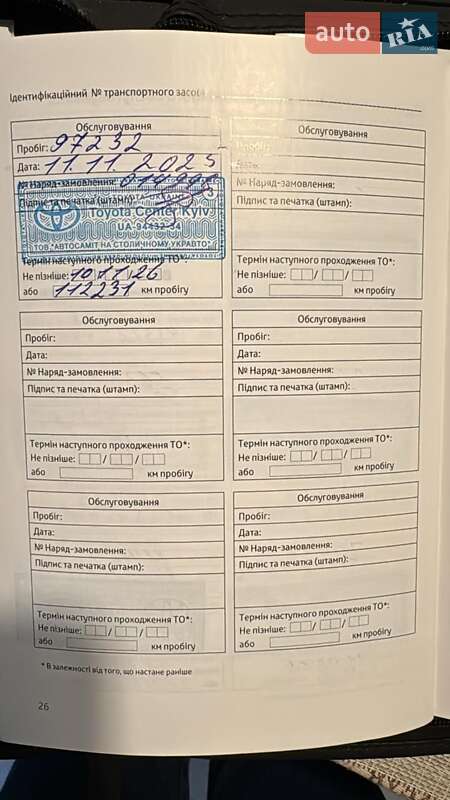 auto RIA.com
Ідентифікаційний № транспортного засобу
Обслуговування
Пробіг: 97232
Дата: 11.11.2025
№ Наряд-замовлення:
Підпис та печатка (штамп):
Toyota Center Kyiv
UA-94432-34
ТОВ "АВТОСАМІТ НА СТОЛИЧНОМУ УКРАВТО"
Термін наступного проходження ТО*:
Не пізніше: 10/11/26
або 112231 км пробігу
Обслуговування
Пробіг:
№ Наряд-замовлення:
Підпис та печатка (штамп):
Термін наступного проходження ТО*:
Не пізніше: / /
або км пробігу
Обслуговування
Пробіг:
Дата:
№ Наряд-замовлення:
Підпис та печатка (штамп):
Термін наступного проходження ТО*:
Не пізніше: / /
або км пробігу
Обслуговування
Пробіг:
Дата:
№ Наряд-замовлення:
Підпис та печатка (штамп):
Термін наступного проходження ТО*:
Не пізніше: / /
або км пробігу
Обслуговування
Пробіг:
Дата:
№ Наряд-замовлення:
Підпис та печатка (штамп):
Термін наступного проходження ТО*:
Не пізніше: / /
або км пробігу
Обслуговування
Пробіг:
Дата:
№ Наряд-замовлення:
Підпис та печатка (штамп):
Термін наступного проходження ТО*:
Не пізніше: / /
або км пробігу
* В залежності від того, що настане раніше
26